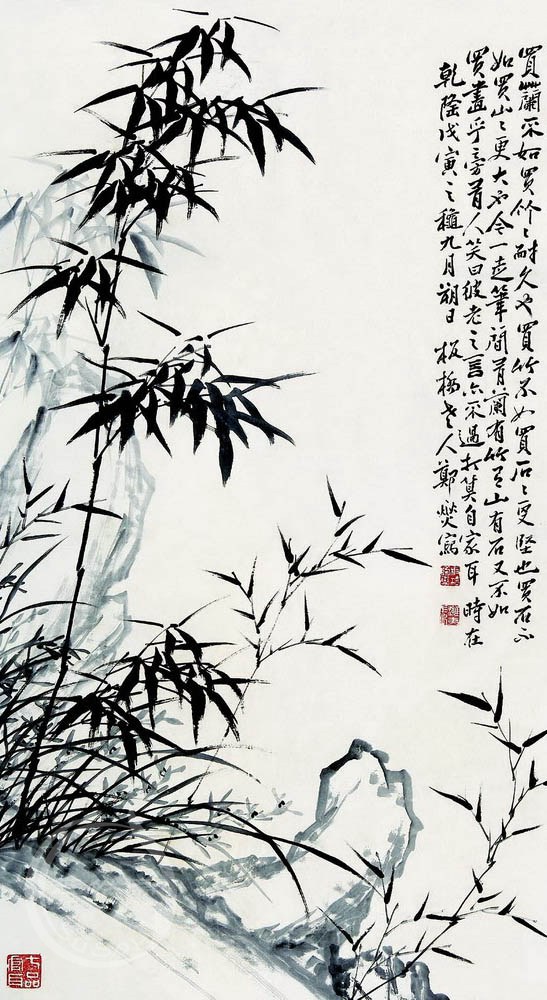 買蘭不如買竹〻耐久也買竹不如買石〻更堅也買石不
如買山〻更大也今一走筆間有蘭有竹有山有石又不如
買畫乎旁有人笑曰彼老之言亦不過打算自家耳時在
乾隆戊寅之穐九月朔日板橋老人鄭燮寫